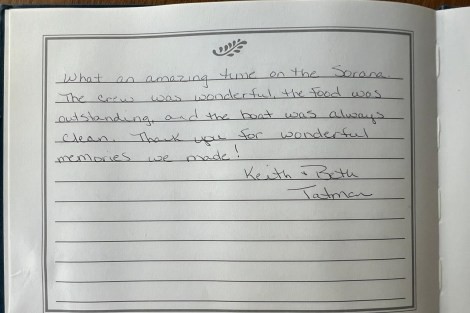 What an amazing time on the Sorana.
The crew was wonderful, the food was
outstanding, and the boat was always
clean. Thank you for wonderful
memories we made!
Keith & Beth
Tatman